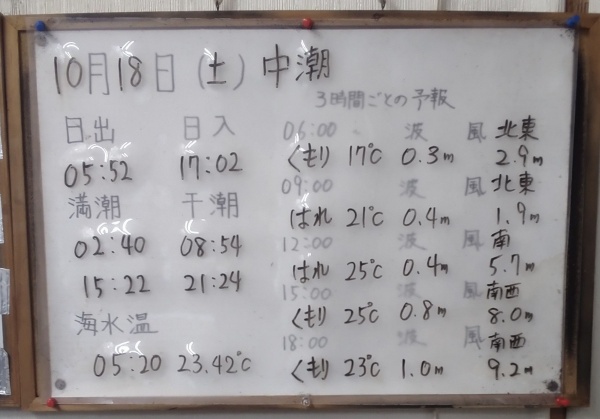 10月18日(土) 中潮
日出 日入
05:52 17:02
満潮 干潮
02:40 08:54
15:22 21:24
海水温
05:20 23.42℃
3時間ごとの予報
06:00 波 風 北東
くもり 17℃ 0.3m 2.9m
09:00 波 風 北東
はれ 21℃ 0.4m 1.9m
12:00 波 風 南
はれ 25℃ 0.4m 5.7m
15:00 波 風 南西
くもり 25℃ 0.8m 8.0m
18:00 波 風 南西
くもり 23℃ 1.0m 9.2m